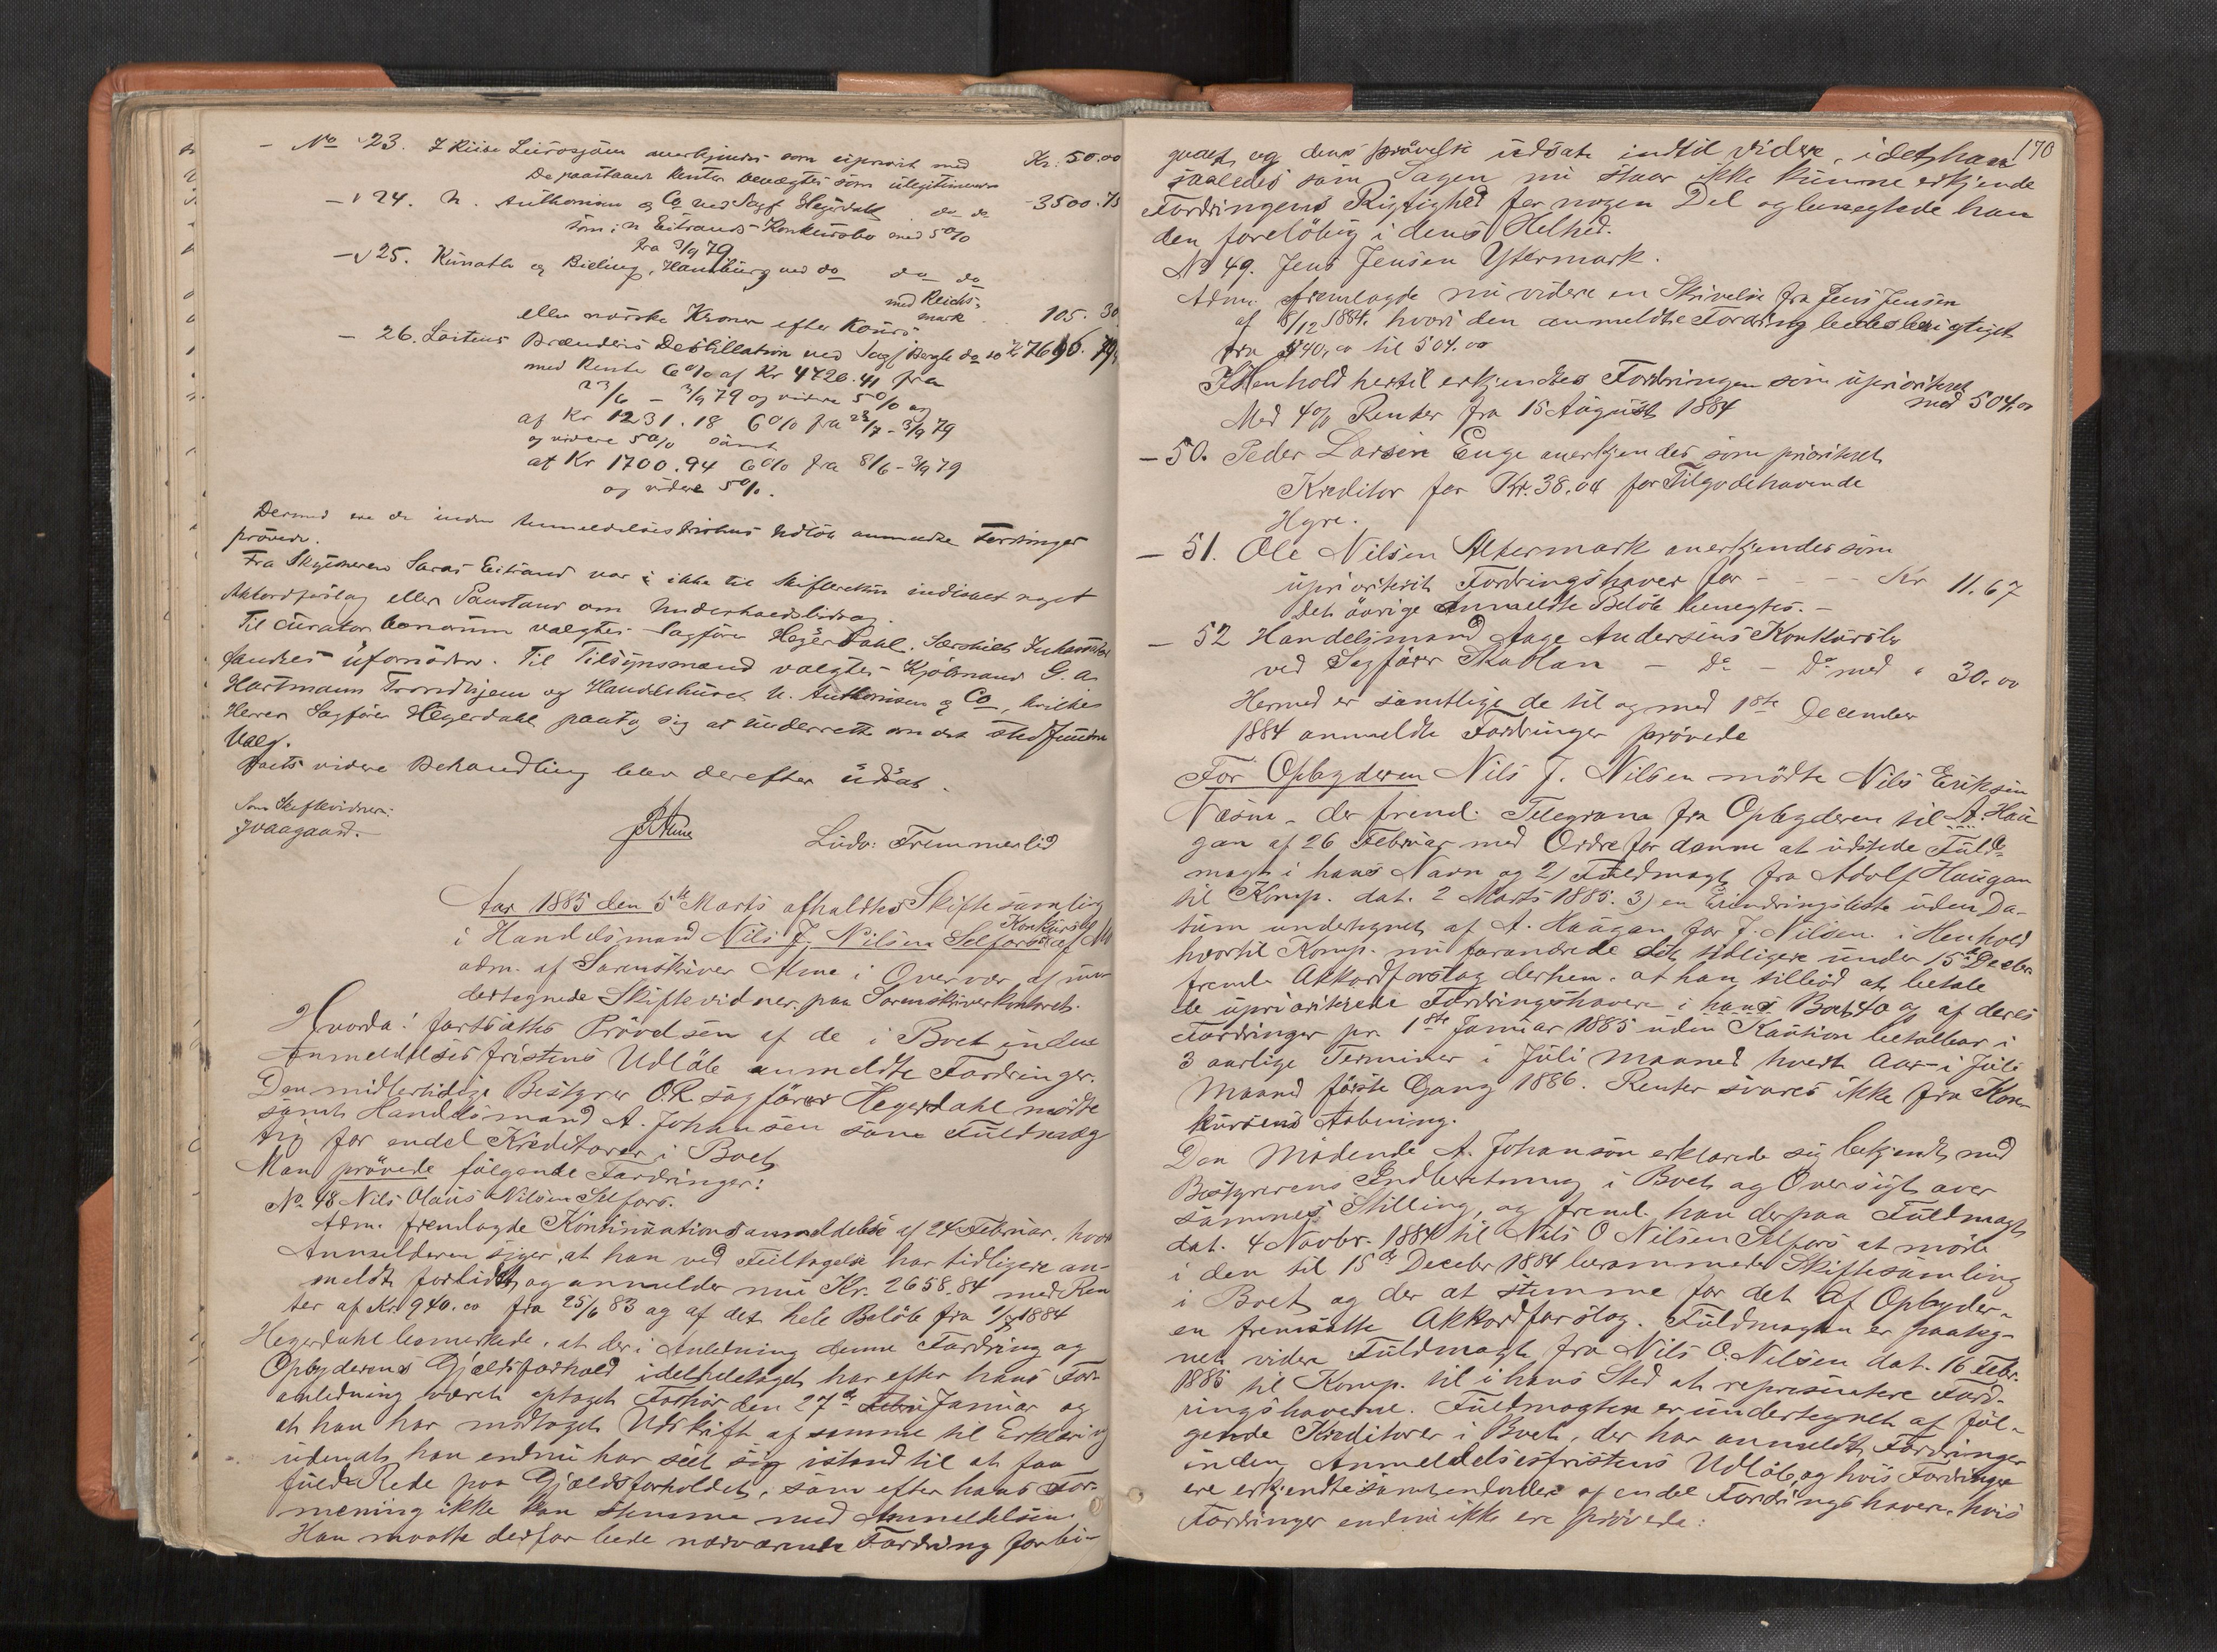 - No 23. J Riise Leirosjøen anerkjendes som uprivit med Kr. 50.00
De paastaaede Renter benægtes som ulegitimeret
- 24. N. Anthonisen & Co ved Sagf Hegerdahl do do - 3500.75
som i N Eitrands Konkursbo med 5%
fra 3/9 79
- 25. Kunath og Bieling, Hamburg ved do do do
med Reichs-
mark 105.30
eller norske Kroner efter Kours
- 26. Løitens Brænderis Destillation ved Sagf Bergh do do
med Rente 6% af Kr 4720.41 fra
23/6 - 3/9 79 og videre 5% og
af Kr 1231.18 6% fra 23/7 - 3/9 79
og videre 5% samt
af Kr 1700.94 6% fra 8/6 - 3/9 79
og videre 5%.
Dermed ere de inden Anmeldelsesfristens Udløb anmeldte Fordringer
prøvede.
Fra Skyldneren Saras Eitrand var ikke til Skifteretten indleveret noget
Akkordforslag eller Paastand om Underholdsbidrag.
Til Curator bonorum valgtes Sagfører Hegerdahl. Særskilt Inkassator
fandtes ufornøden. Til Tilsynsmænd valgtes Kjøbmand G. A.
Hartmann Trondhjem og Handelshuset N. Anthonisen & Co, hvilke
Herrer Sagfører Hegerdahl paatog sig at underrette om det stedfundne
Valg.
Boets videre Behandling blev derefter udsat.
Som Skiftevidner:
J Waagaard.
Ludv: Fremmerlid
Aar 1885 den 5te Marts afholdtes Skiftesamling
i Handelsmand Nils J. Nilsen Selfors Konkursbo af Mo
adm. af Sorenskriver Alme i Overvær af un-
dertegnede Skiftevidner paa Sorenskriverkontoret.
Hvorda: fortsattes Prøvelsen af de i Boet inden
Anmeldelsesfristens Udløb anmeldte Fordringer.
Den midlertidige Bestyrer O.R. sagfører Hegerdahl mødte
samt Handelsmand A. Johansen som Fuldmæg
tig for endel Kreditorer i Boet
Man prøvede følgende Fordringer:
No 48 Nils Olaus Nilsen Selfors.
Adm. fremlagde Kontinuationsanmeldelse af 24 Februar, hvori
Anmelderen siger, at han ved Feiltagelse har tidligere an-
meldt forlidt, og anmelder nu Kr. 2658.84 med Ren
ter af Kr. 940.00 fra 25/6 83 og af det hele Beløb fra 1/8 1884
Hegerdahl bemærkede, at der i Anledning denne Fordring og
Opbyderens Gjældsforhold idetheletaget har efter hans For-
anledning været optaget Forhør den 27de Januar og
at han har modtaget Udskrift af samme til Erklæring
udenat han endnu har seet sig istand til at faa
fuld Rede paa Gjældsforholdet, som efter hans For-
mening ikke kan stemme med Anmeldelsen.
Han maatte derfor bede nærværende Fordring forbi-
170
gaaet og dens prøvelse udsat indtil videre, idet han
saaledes som Sagen nu staar ikke kunne erkjende
Fordringens Rigtighed for nogen Del og benegtede han
den foreløbig i dens Helhed.
No 49. Jens Jensen Ytermark.
Adm. fremlagde nu videre en Skrivelse fra Jens Jensen
af 8/12 1884. hvori den anmeldte Fordring bedes berigtiget
fra 440,00 til 504.00
I Henhold hertil erkjendtes Fordringen som uprioriteret
med 504,00
Med 4% Renter fra 15 August 1884
- 50. Peder Larsen Enge anerkjendes som prioriteret
Kreditor for Kr. 38.04 for Tilgodehavende
Hyre.
- 51. Ole Nilsen Altermark anerkjendes som
uprioriteret Fordringshaver for - - - - Kr 11.67
Det øvrige anmeldte Beløb benegtes. -
- 52 Handelsmand Aage Andersens Konkursbo
ved Sagfører Skablan - Do - Do med " 30.00
Hermed er samtlige de til og med 1ste December
1884 anmeldte Fordringer prøvede
For Opbyderen Nils J. Nilsen mødte Nils Eriksen
Næsna - der freml. Telegram fra Opbyderen til A. Hau
gan af 26 Februar med Ordre for denne at udstede Fuld-
magt i hans Navn og 2) Fuldmagt fra Adolf Haugan
til Komp. dat. 2 Marts 1885. 3) en Erindringsliste uden Da-
tum undertegnet af A. Haugan for J. Nilsen. i Henhold
hvortil Komp. nu forandrede det tidligere under 15de Decbr
freml. Akkordforslag derhen. at han tilbød at betale
de uprioriterede Fordringshavere i hans Bo 40 % af deres
Fordringer pr. 1ste Januar 1885 uden Kaution betalbar i
3 aarlige Terminer i Juli Maaned hvert Aar - i Juli
Maaned første Gang 1886. Renter svares ikke fra Kon-
kursens Aabning.
Den Mødende A. Johansen erklærede sig bekjendt med
Bestyrerens Indberetning i Boet og Oversigt over
sammes Stilling, og freml. han derpaa Fuldmagt
dat. 4 Novbr. 1884 til Nils O Nilsen Selfors at møde
i den til 15de Decbr 1884 berammede Skiftesamling
i Boet og der at stemme for det af Opbyder-
en fremsatte Akkordforslag. Fuldmagten er paateg-
net videre Fuldmagt fra Nils O. Nilsen dat. 16 Febr.
1885 til Komp. til i hans Sted at repræsentere Ford-
ringshaverne. Fuldmagten er undertegnet af føl-
gende Kreditorer i Boet, der har anmeldt Fordringer
inden Anmeldelsesfristens Udløb, og hvis Fordringer
ere erkjendte samt endvidere af endel Fordringshavere, hvis
Fordringer endnu ikke ere prøvede: